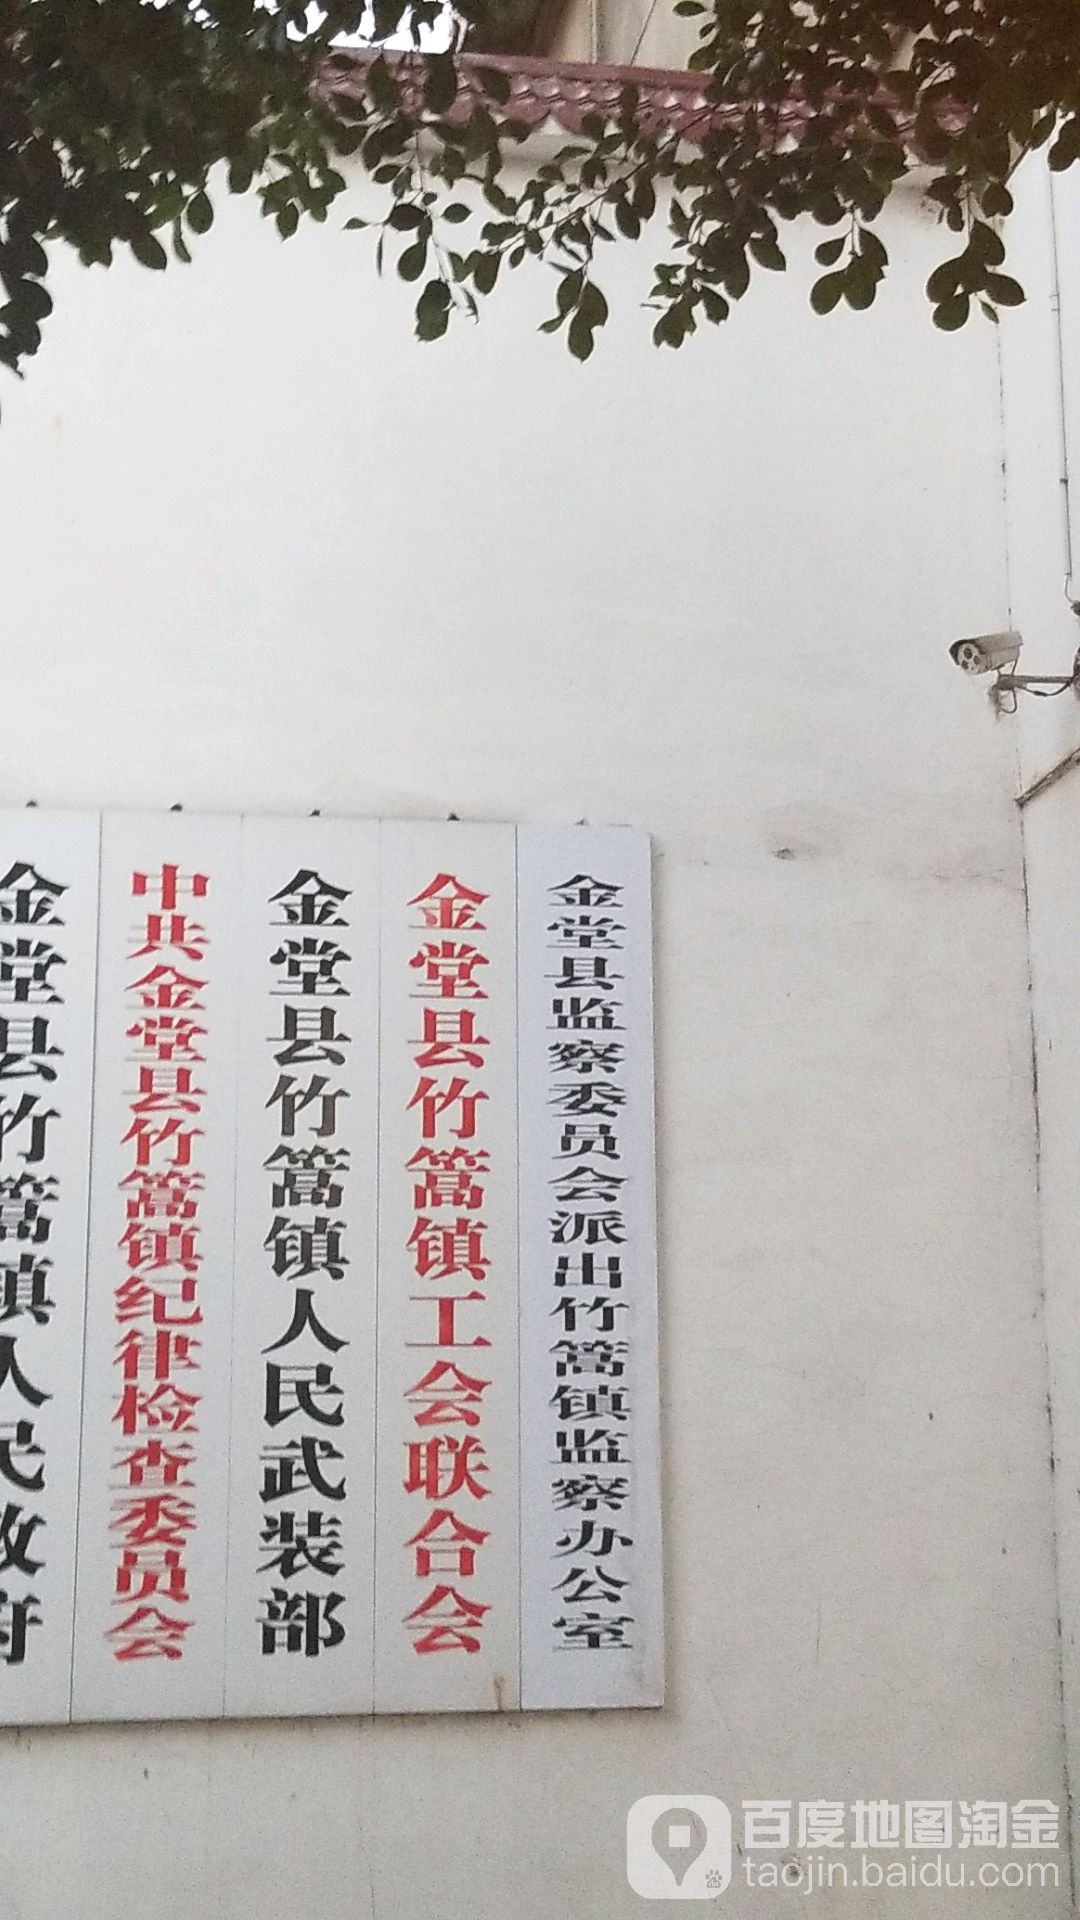 金堂县竹篙镇人民政府
中共金堂县竹篙镇纪律检查委员会
金堂县竹篙镇人民武装部
金堂县竹篙镇工会联合会
金堂县监察委员会派出竹篙镇监察办公室
百度地图淘金
taojin.baidu.com